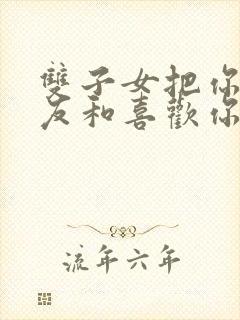 雙子女把你
友和喜歡你
流年六年